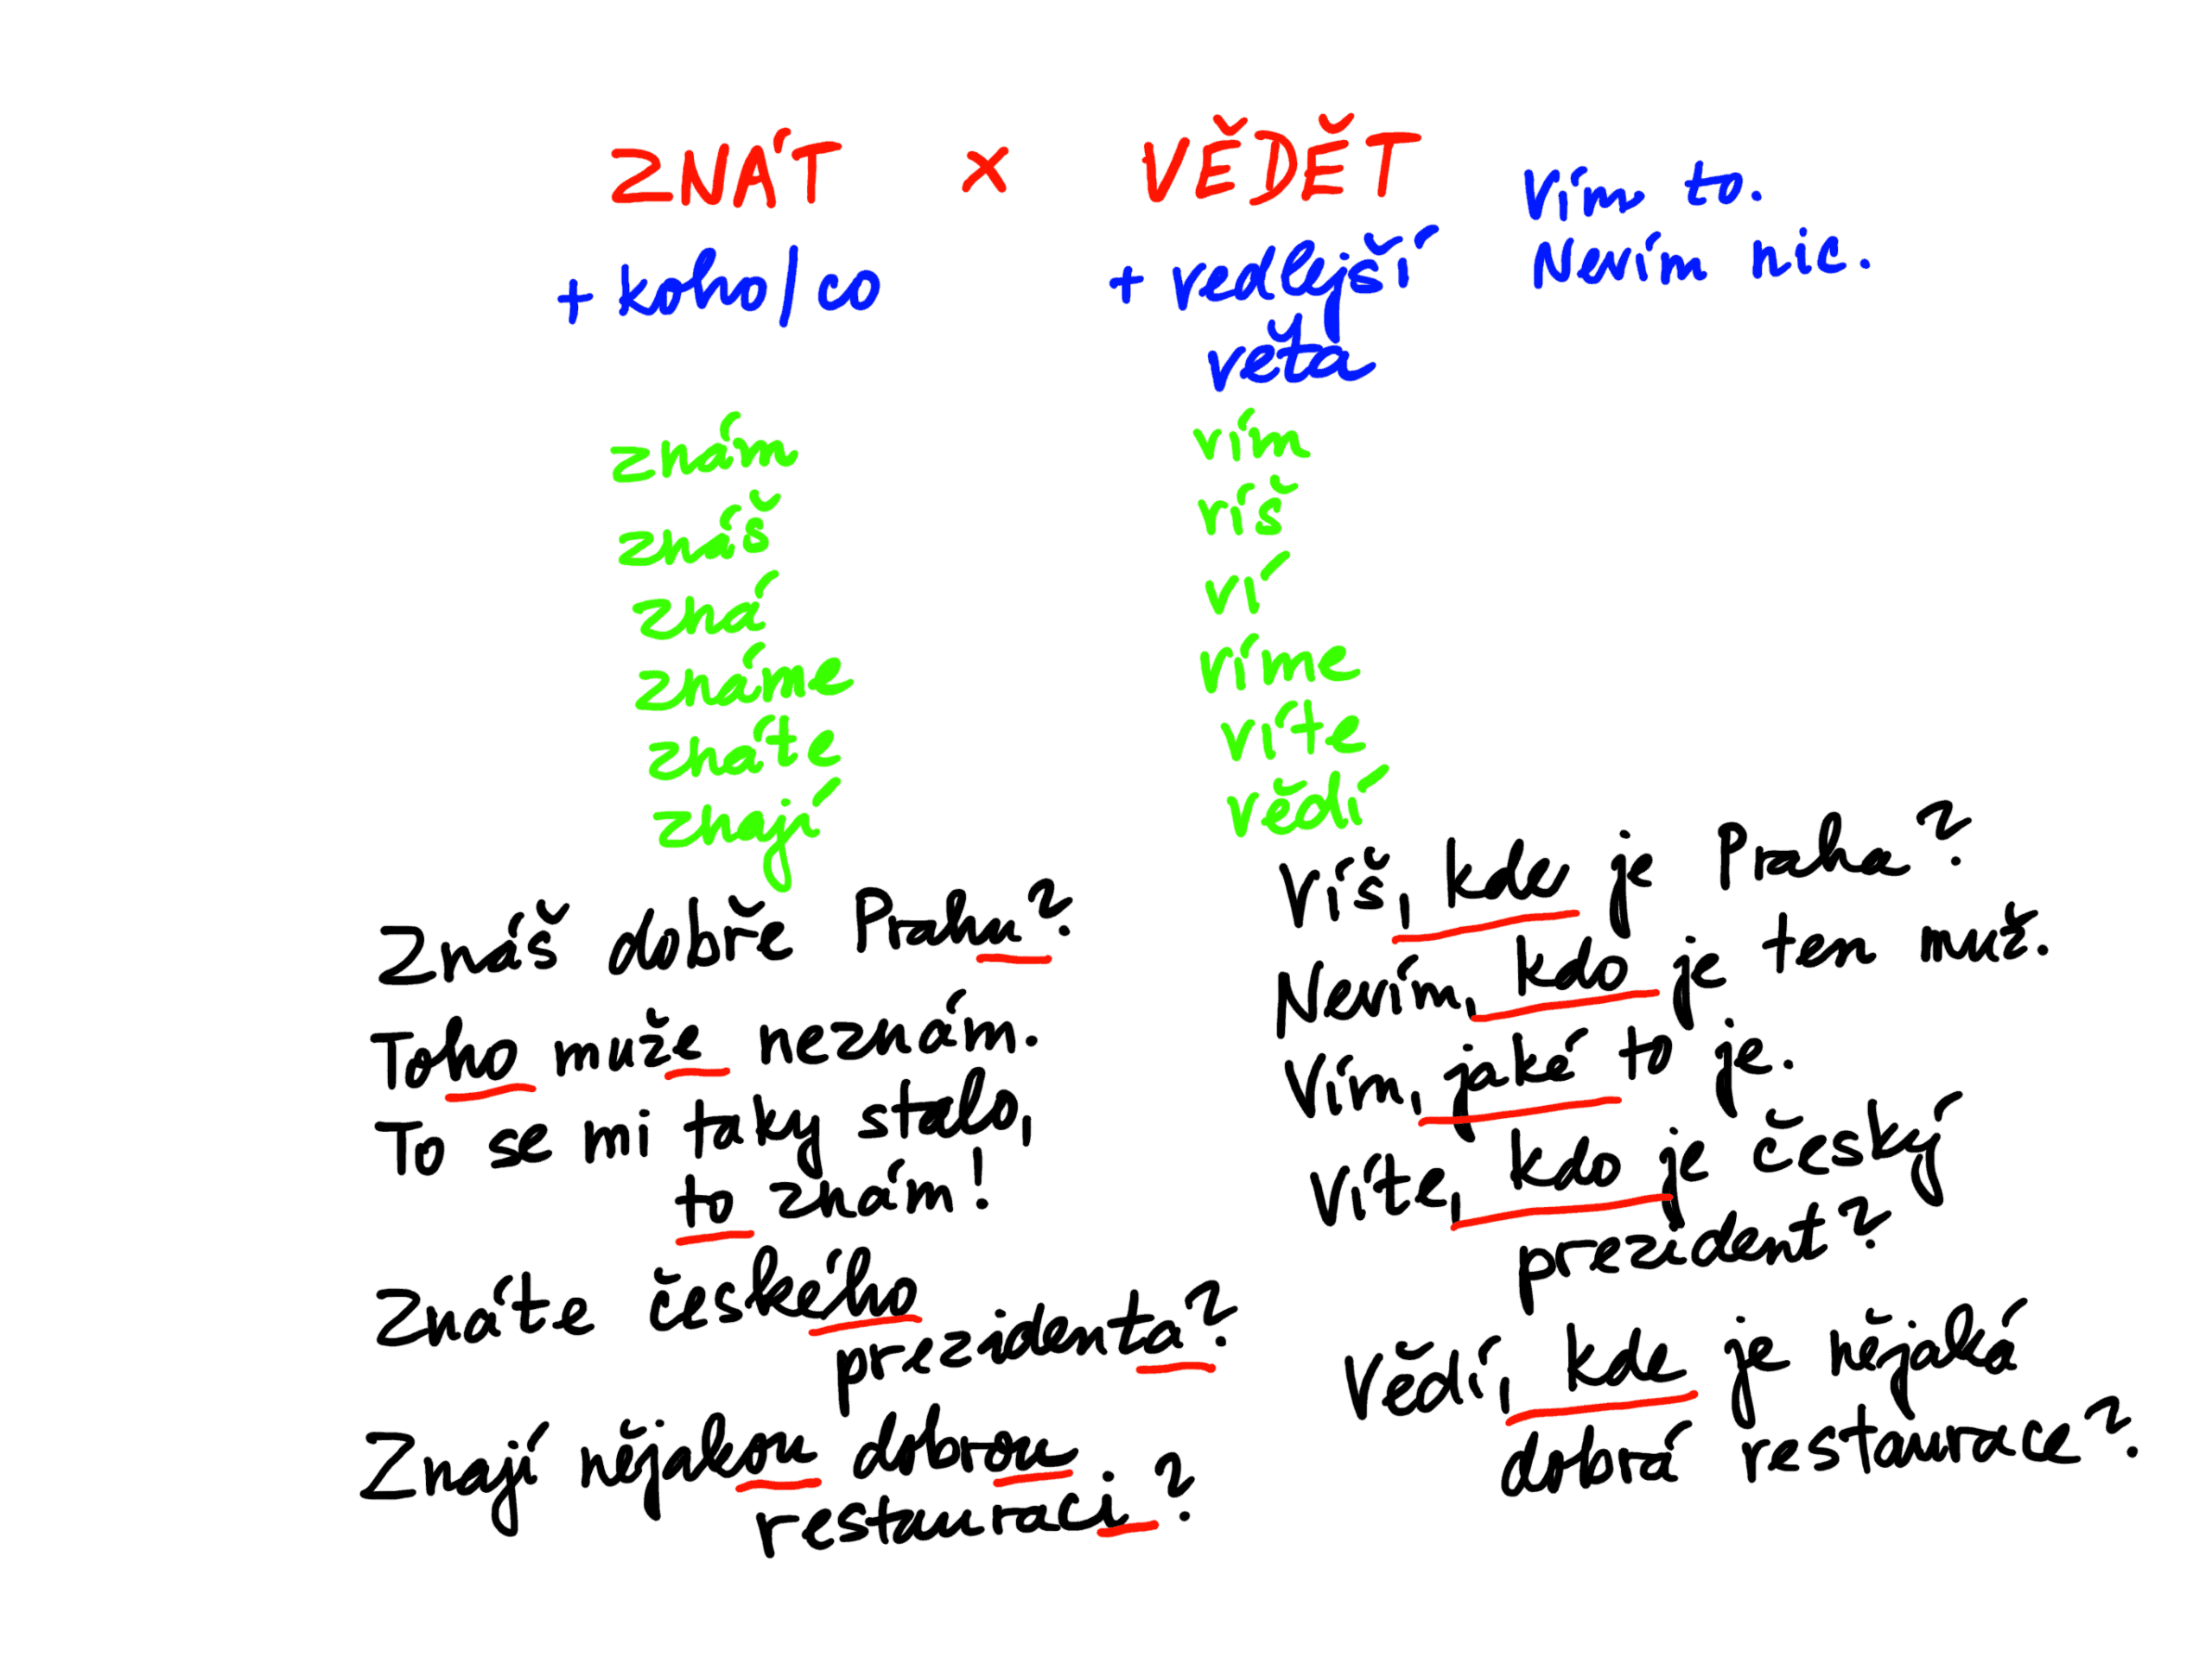 ZNÁT x VĚDĚT
Vím to.
Nevím nic.
+ koho/co
+ vedlejší
věta
znám
znáš
zná
známe
znáte
znají
vím
víš
ví
víme
víte
vědí
Znáš dobře Prahu?
Toho muže neznám.
To se mi taky stalo,
to znám!
Znáte českého
prezidenta?
Znají nějakou dobrou
restauraci?
Víš, kde je Praha?
Nevím, kdo je ten muž.
Vím, jaké to je.
Víte, kdo je český
prezident?
Vědí, kde je nějaká
dobrá restaurace?